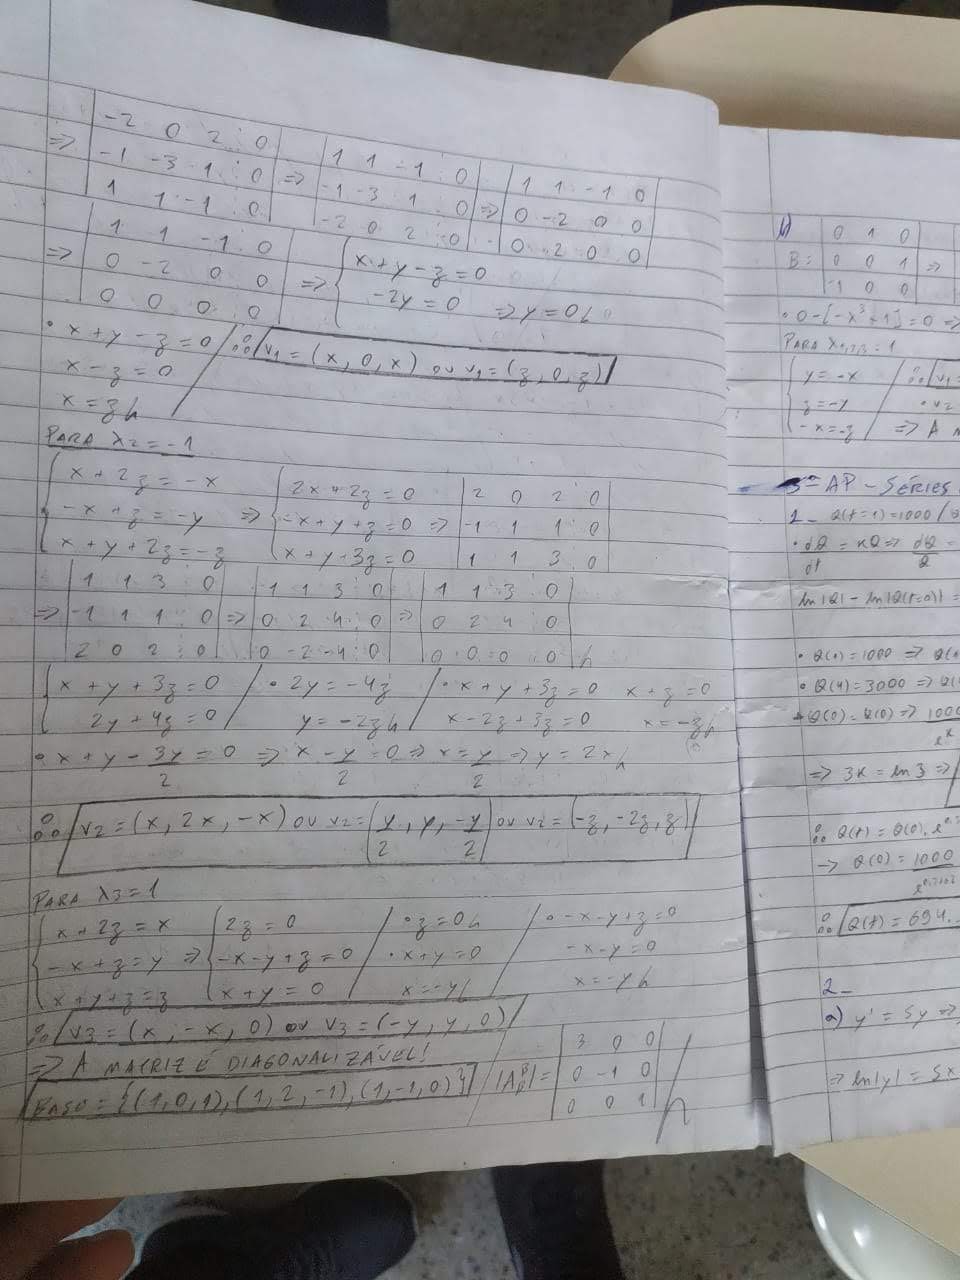 -2 0 2 : 0
=> -1 -3 -1 : 0 =>
1 1 -1 : 0
1 1 -1 : 0
-1 -3 1 : 0 =>
-2 0 2 : 0
1 1 -1 0
0 -2 0 0
0 2 0 0
1 1 -1 : 0
=> 0 -2 0 : 0 =>
0 0 0 : 0
{ x + y - z = 0
-2y = 0 => y = 0
• x + y - z = 0 / ∴ v1 = (x, 0, x) ou v1 = (z, 0, z)
x - z = 0
x = z
PARA λ2 = -1
{ x + 2z = -x
-x + z = -y =>
x + y + 2z = -z
{ 2x + 2z = 0
-x + y + z = 0 =>
x + y + 3z = 0
2 0 2 : 0
-1 1 1 : 0
1 1 3 : 0
1 1 3 : 0
=> -1 1 1 : 0 =>
2 0 2 : 0
1 1 3 : 0
0 2 4 : 0 =>
0 -2 -4 : 0
1 1 3 : 0
0 2 4 : 0
0 0 0 : 0
{ x + y + 3z = 0 / • 2y = -4z / • x + y + 3z = 0 x + z = 0
2y + 4z = 0 / y = -2z / x - 2z + 3z = 0 x = -z
• x + y - 3y/2 = 0 => x - y/2 = 0 => x = y/2 => y = 2x
∴ v2 = (x, 2x, -x) ou v2 = (y/2, y, -y/2) ou v2 = (-z, -2z, z)
PARA λ3 = 1
{ x + 2z = x
-x + z = y =>
x + y + z = z
{ 2z = 0
-x - y + z = 0
x + y = 0
• z = 0
• x + y = 0
x = -y
• -x - y + z = 0
-x - y = 0
x = -y
∴ v3 = (x, -x, 0) ou v3 = (-y, y, 0)
=> A MATRIZ É DIAGONALIZÁVEL!
BASE = {(1, 0, 1), (1, 2, -1), (1, -1, 0)}
3 0 0
0 -1 0
0 0 1
b)
0 1 0
B = 0 0 1 =>
-1 0 0
• 0 - [-x³ + 1] = 0 =>
{ y = -x
z = -y
-x = -z
=> A
3ª AP - SÉRIES
1- Q(t=1) = 1000 /
• dQ/dt = KQ => dQ/Q =
ln|Q| - ln|Q(t=0)| =
• Q(1) = 1000 =>
• Q(4) = 3000 =>
Q(0) = Q(0) => 1000/e^k
=> 3K = ln 3 =>
∴ Q(t) = Q(0).
-> Q(0) = 1000
∴ Q(t) = 694.
2-
a) y' = 5y =>
=> ln|y| = 5x